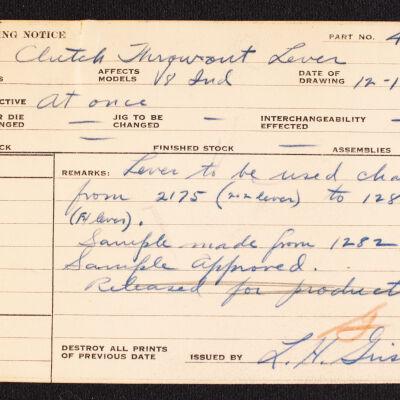 NG NOTICE PART NO. 4
Clutch Throwout Lever
S AFFECTS MODELS V8 Ind DATE OF DRAWING 12-1
CTIVE At once
R DIE NGED — JIG TO BE CHANGED — INTERCHANGEABILITY EFFECTED —
CK FINISHED STOCK ASSEMBLIES
REMARKS: Lever to be used cha
from 2175 (212 lever) to 128
(F1 lever).
Sample made from 1282
Sample Approved.
Released for product
DESTROY ALL PRINTS
OF PREVIOUS DATE ISSUED BY L. H. Gris